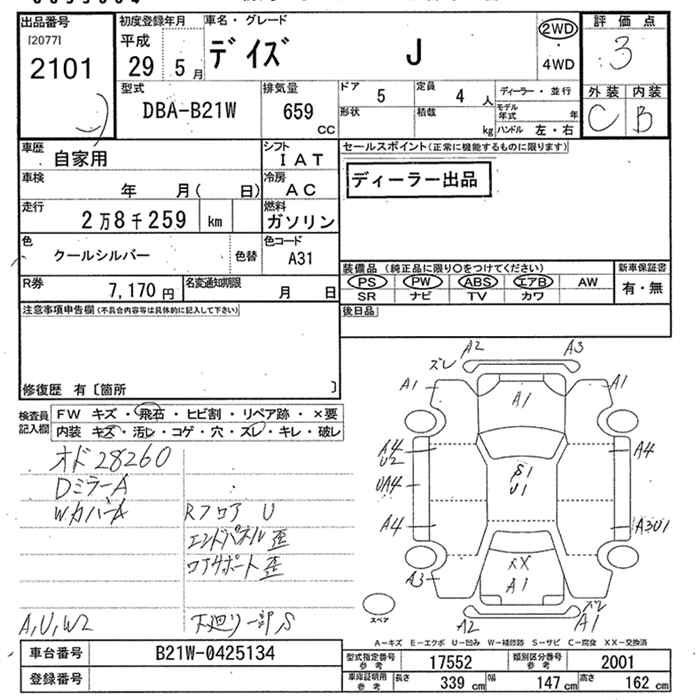 出品番号
[2077]
2101
初度登録年月
平成
29 5月
車名・グレード
デイズ J
2WD
・
4WD
評価点
3
外装 内装
C B
型式
DBA-B21W
排気量
659
CC
ドア
5
定員
4 人
形状
積載
kg
ディーラー・並行
モデル年式 年
ハンドル 左・右
車歴
自家用
シフト
IAT
車検
年 月( 日)
冷房
AC
走行
2万8千259 km
燃料
ガソリン
色
クールシルバー
色替
色コード
A31
R券
7,170円
名変通知期限
月 日
セールスポイント(正常に機能するものに限ります)
ディーラー出品
装備品 (純正品に限り○をつけてください)
PS PW ABS エアB AW
SR ナビ TV カワ
新車保証書
有・無
後日品
注意事項申告欄(不具合内容等は具体的に記入して下さい)
修復歴 有〔箇所 〕
検査員
記入欄
FW キズ・飛石・ヒビ割・リペア跡・×要
内装 キズ・汚レ・コゲ・穴・ズレ・キレ・破レ
オド28260
DミラーA
WカバーA
Rフロア U
エンドパネル歪
コアサポート歪
A,U,W2
下廻り一部S
ズレ A2 A3
A1 A1 A1
A4
U2
UA4
A4
S1
U1
A4
A3U1
A3
XX
A1
A2
ズレ
A1
スペア
A-キズ E-エクボ U-凹み W-補修跡 S-サビ C-腐食 XX-交換済
車台番号
B21W-0425134
登録番号
型式指定番号
参考
17552
類別区分番号
参考
2001
車庫証明用
参考
長さ 339cm 幅 147cm 高さ 162cm